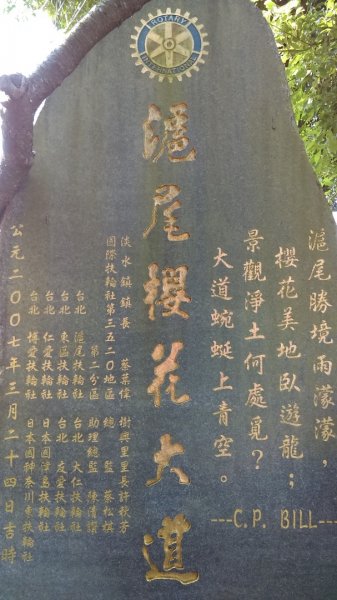 ROTARY
INTERNATIONAL
滬尾勝境雨濛濛，
櫻花美地臥遊龍；
景觀淨土何處覓？
大道蜿蜒上青空。
---C.P. BILL---
滬尾櫻花大道
淡水鎮鎮長 蔡葉偉 樹興里里長許秋芳
國際扶輪社第三五二０地區 總監 蔡松棋
第二分區 助理總監 陳清讚
台北 滬尾扶輪社 台北 大仁扶輪社
台北 東區扶輪社 台北 友愛扶輪社
台北 仁愛扶輪社 日本國津島扶輪社
台北 博愛扶輪社 日本國神奈川東扶輪社
公元二００七年三月二十四日吉時